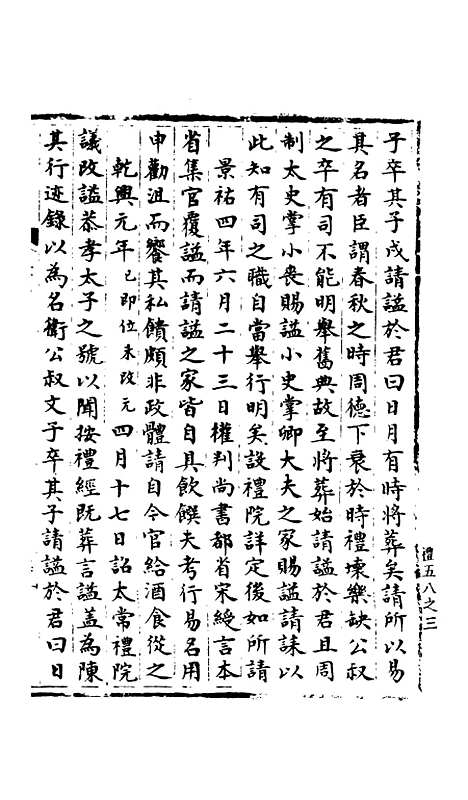 子卒其子戍請謚於君曰日月有時將葬矣請所以易
其名者臣謂春秋之時周德下衰於時禮壞樂缺公叔
之卒有司不能明舉舊典故至將葬始請謚於君且周
制太史掌小喪賜謚小史掌卿大夫之冢賜謚請誄以
此知有司之職自當舉行明矣設禮院詳定後如所請
景祐四年六月二十三日權判尚書都省宋綬言本
省集官覆謚而請謚之家皆自具飲饌夫考行易名用
申勸沮而饗其私饋頗非政體請自今官給酒食從之
乾興元年已即位未改元四月十七日詔太常禮院
議改謚恭孝太子之號以聞按禮經既葬言謚蓋為陳
其行迹錄以為名衛公叔文子卒其子請謚於君曰日
禮五八之三